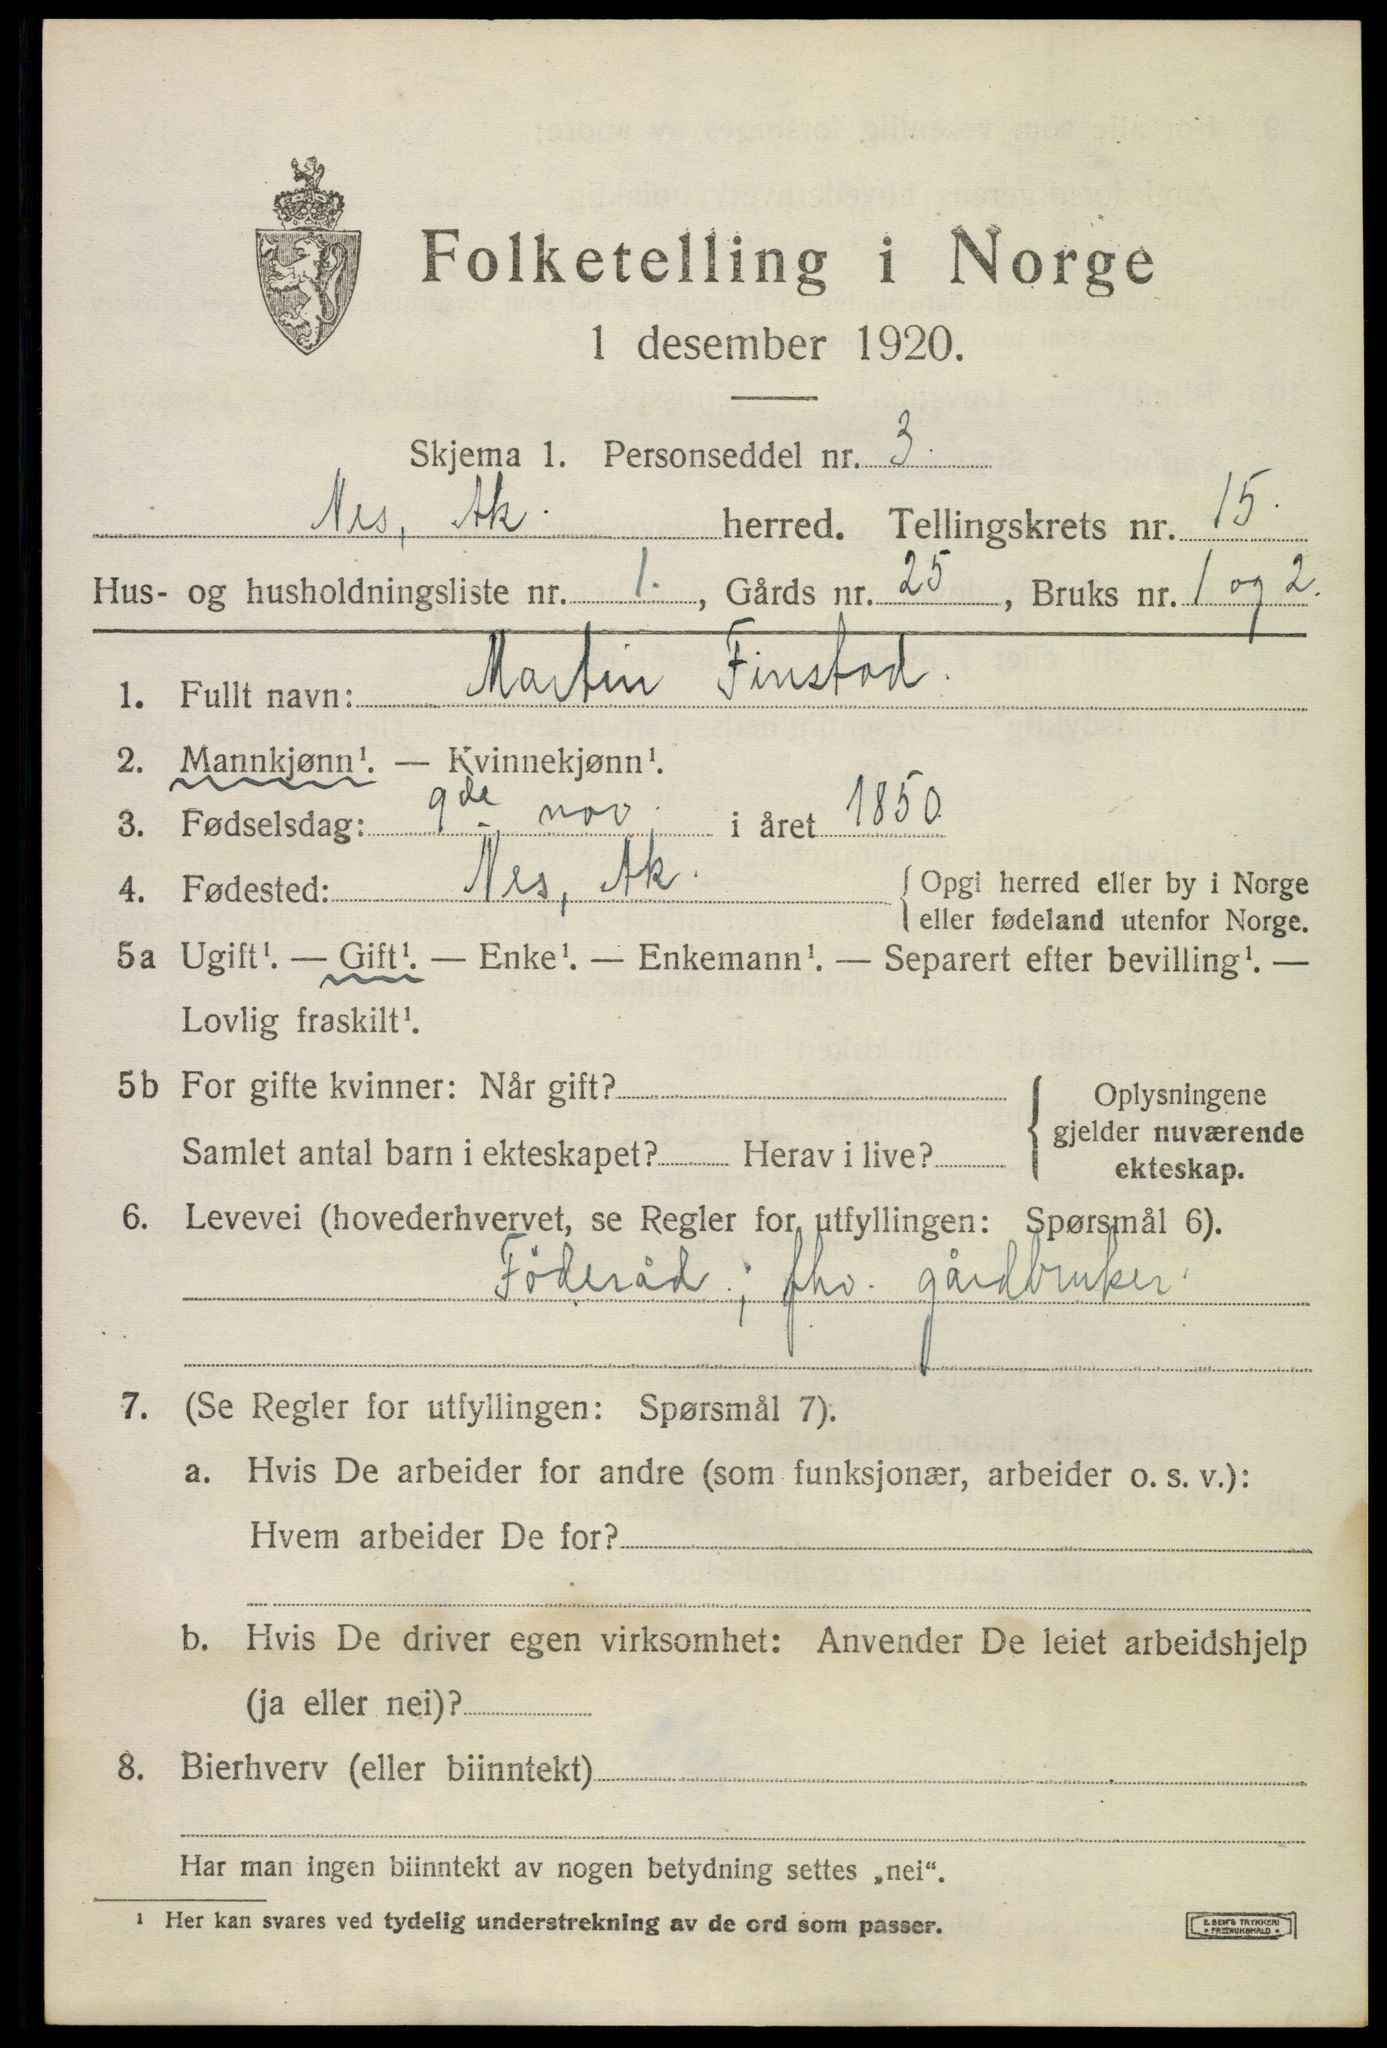 Folketelling i Norge
1 desember 1920.
Skjema 1. Personseddel nr. 3.
Nes, Ak. herred. Tellingskrets nr. 15.
Hus- og husholdningsliste nr. 1., Gårds nr. 25, Bruks nr. 1 og 2.
1. Fullt navn: Martin Finstad.
2. Mannkjønn¹. — Kvinnekjønn¹.
3. Fødselsdag: 9de nov. i året 1850
4. Fødested: Nes, Ak. { Opgi herred eller by i Norge
eller fødeland utenfor Norge.
5a Ugift¹. — Gift¹. — Enke¹. — Enkemann¹. — Separert efter bevilling¹. —
Lovlig fraskilt¹.
5b For gifte kvinner: Når gift? { Oplysningene
gjelder nuværende
Samlet antal barn i ekteskapet? Herav i live?
ekteskap.
6. Levevei (hovederhvervet, se Regler for utfyllingen: Spørsmål 6).
Föderåd; fhv. gårdbruker.
7. (Se Regler for utfyllingen: Spørsmål 7).
a. Hvis De arbeider for andre (som funksjonær, arbeider o. s. v.):
Hvem arbeider De for?
b. Hvis De driver egen virksomhet: Anvender De leiet arbeidshjelp
(ja eller nei)?
8. Bierhverv (eller biinntekt)
Har man ingen biinntekt av nogen betydning settes „nei“.
¹ Her kan svares ved tydelig understrekning av de ord som passer.
E. SEM'S TRYKKERI
• FREDRIKSHALD •